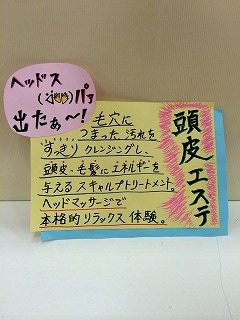 ヘッドス
パァ
出たぁ〜!
頭皮エステ
毛穴に
つまった汚れを
すっきりクレンジングし、
頭皮、毛髪にエネルギーを
与えるスキャルプトリートメント。
ヘッドマッサージで
本格的リラックス体験。